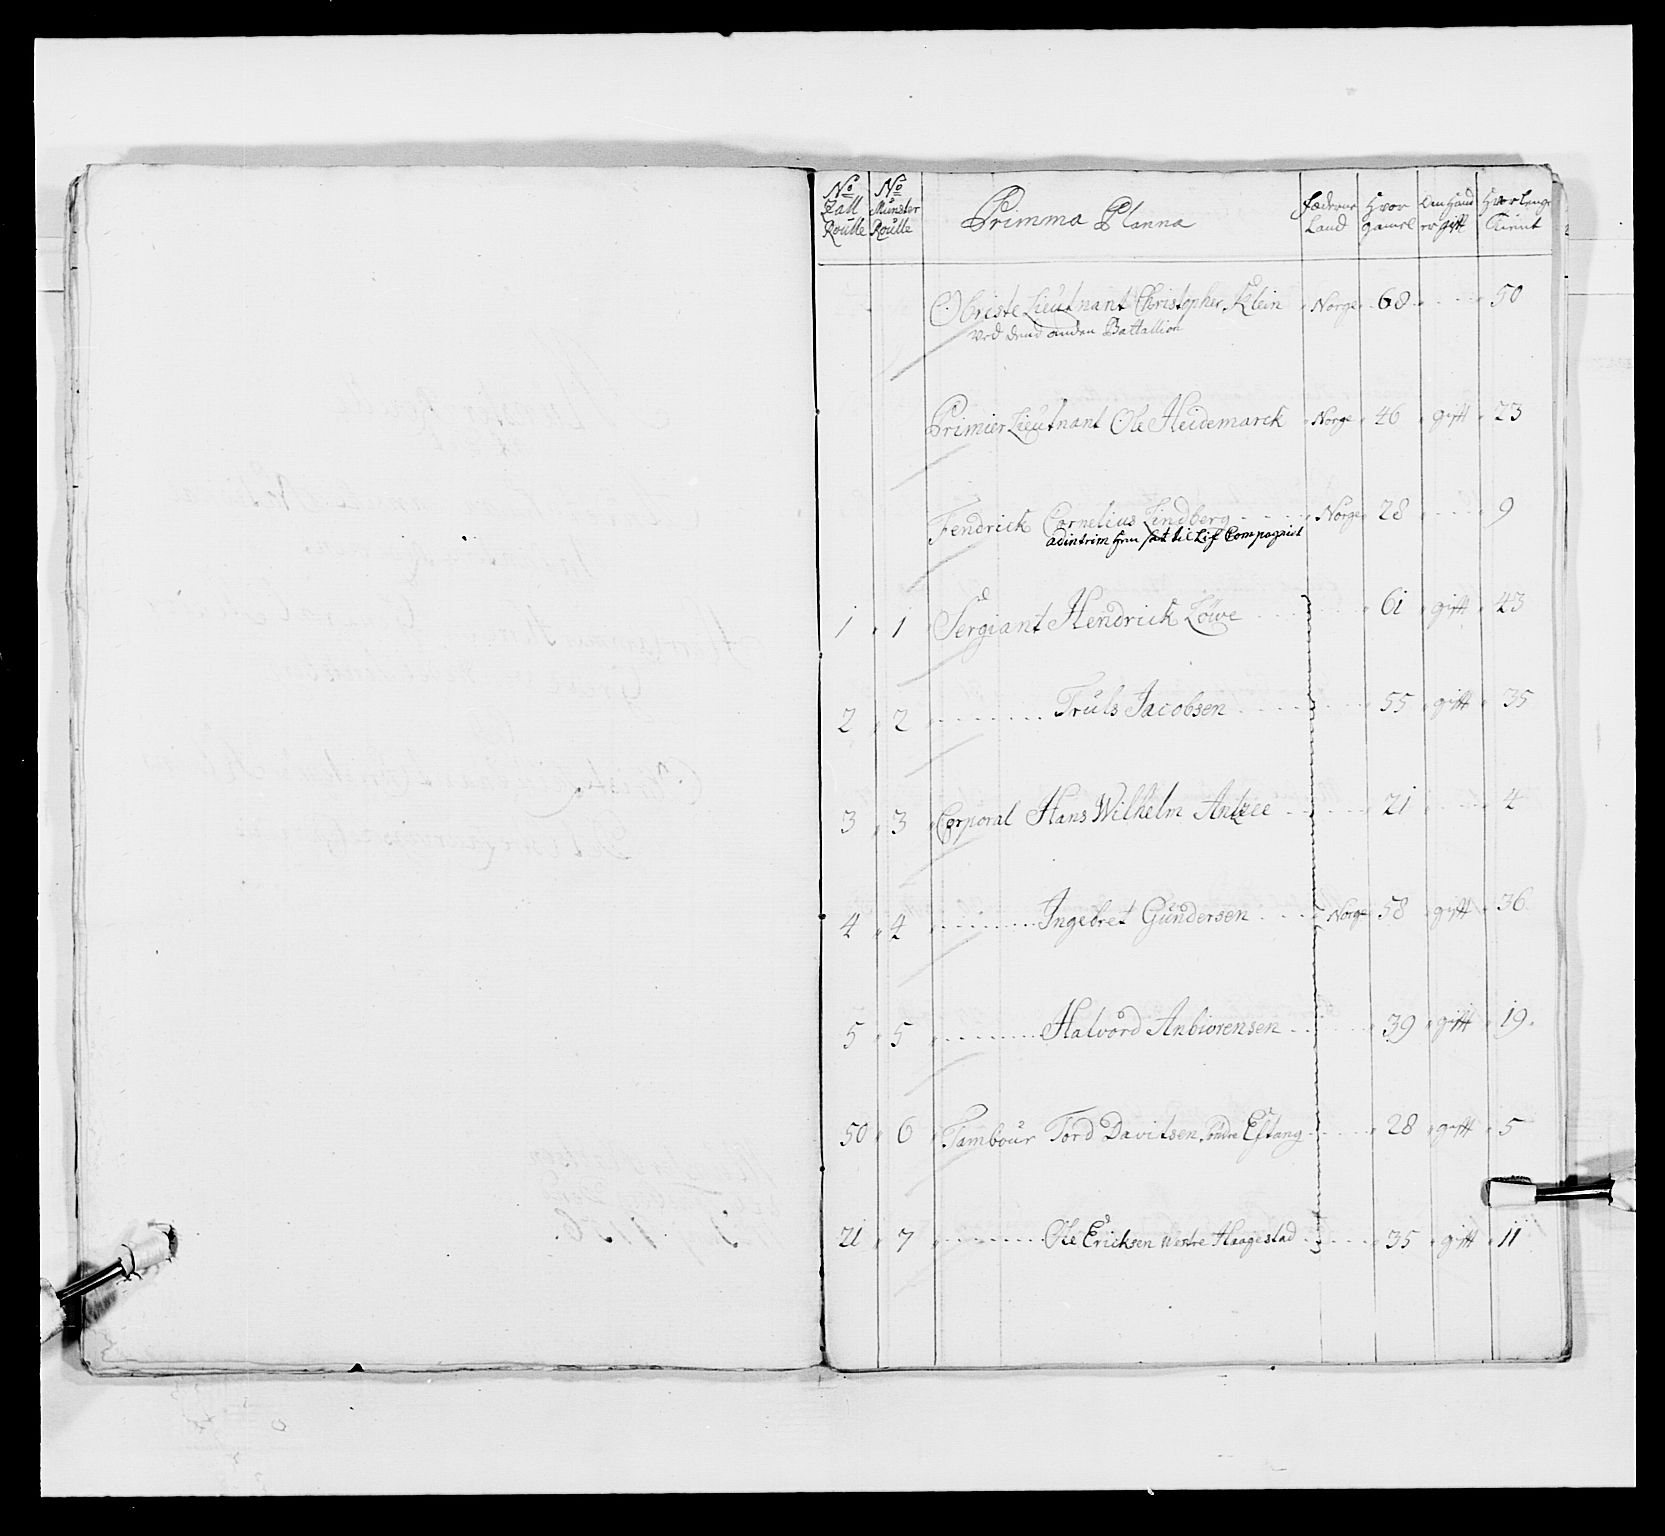 No Zall Roulle | No Munster Roulle | Primma Planna | Fæderne Land | Hvor gamel | Om hand er gift | Hvor lenge tient
Obriste Lieutnant Christopher Klein | Norge | 68 | | 50
ved dend anden Battallion
Primier Lieutnant Ole Heidemarck | Norge | 46 | gift | 23
Fendrick Cornelius Lindberg | Norge | 28 | | 9
adintrim hen sat til Lif Compagniet
1 | 1 | Sergiant Hendrick Löwe | | 61 | gift | 43
2 | 2 | Truls Jacobsen | | 55 | gift | 35
3 | 3 | Corporal Hans Wilhelm | | 21 | | 4
4 | 4 | Ingebret Gundersen | Norge | 58 | gift | 36
5 | 5 | Halvord Anbiörensen | | 39 | gift | 19
50 | 6 | Tambour Tord Davitsen Söndre Estang | | 28 | gift | 5
21 | 7 | Ole Ericksen Westre Haagestad | | 35 | gift | 11